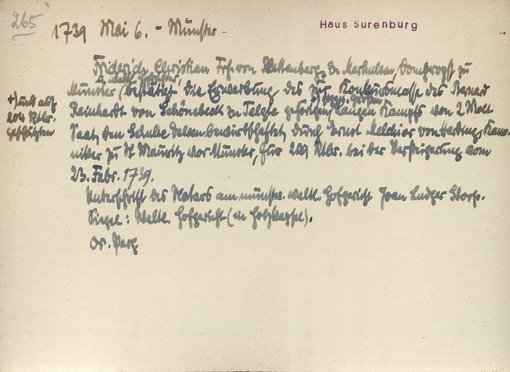 265
1739 Mai 6. - Münster -
Haus Surenburg
Friderich Christian Frh. von Plettenberg zu Marhulsen, Dompropst zu
Münster bestätigt die Erwerbung des zur Konkursmasse des Bernd
Reinhardt von Schönebeck zu Telgte gehörigen langen Kamps von 2 Molt
Saat, den Schulte durch Ernst Melchior von Kano-
niker zu St. Mauritz vor Münster, für 201 Rtlr. bei der Versteigerung vom
23. Febr. 1739.
Unterschrift des Notars am münster. weltl. Hofgericht Joan Ludger Storp.
Siegel: Weltl. Hofgericht (in Holzkapsel).
Or. Perg.
+) und auf
201 Rtlr.